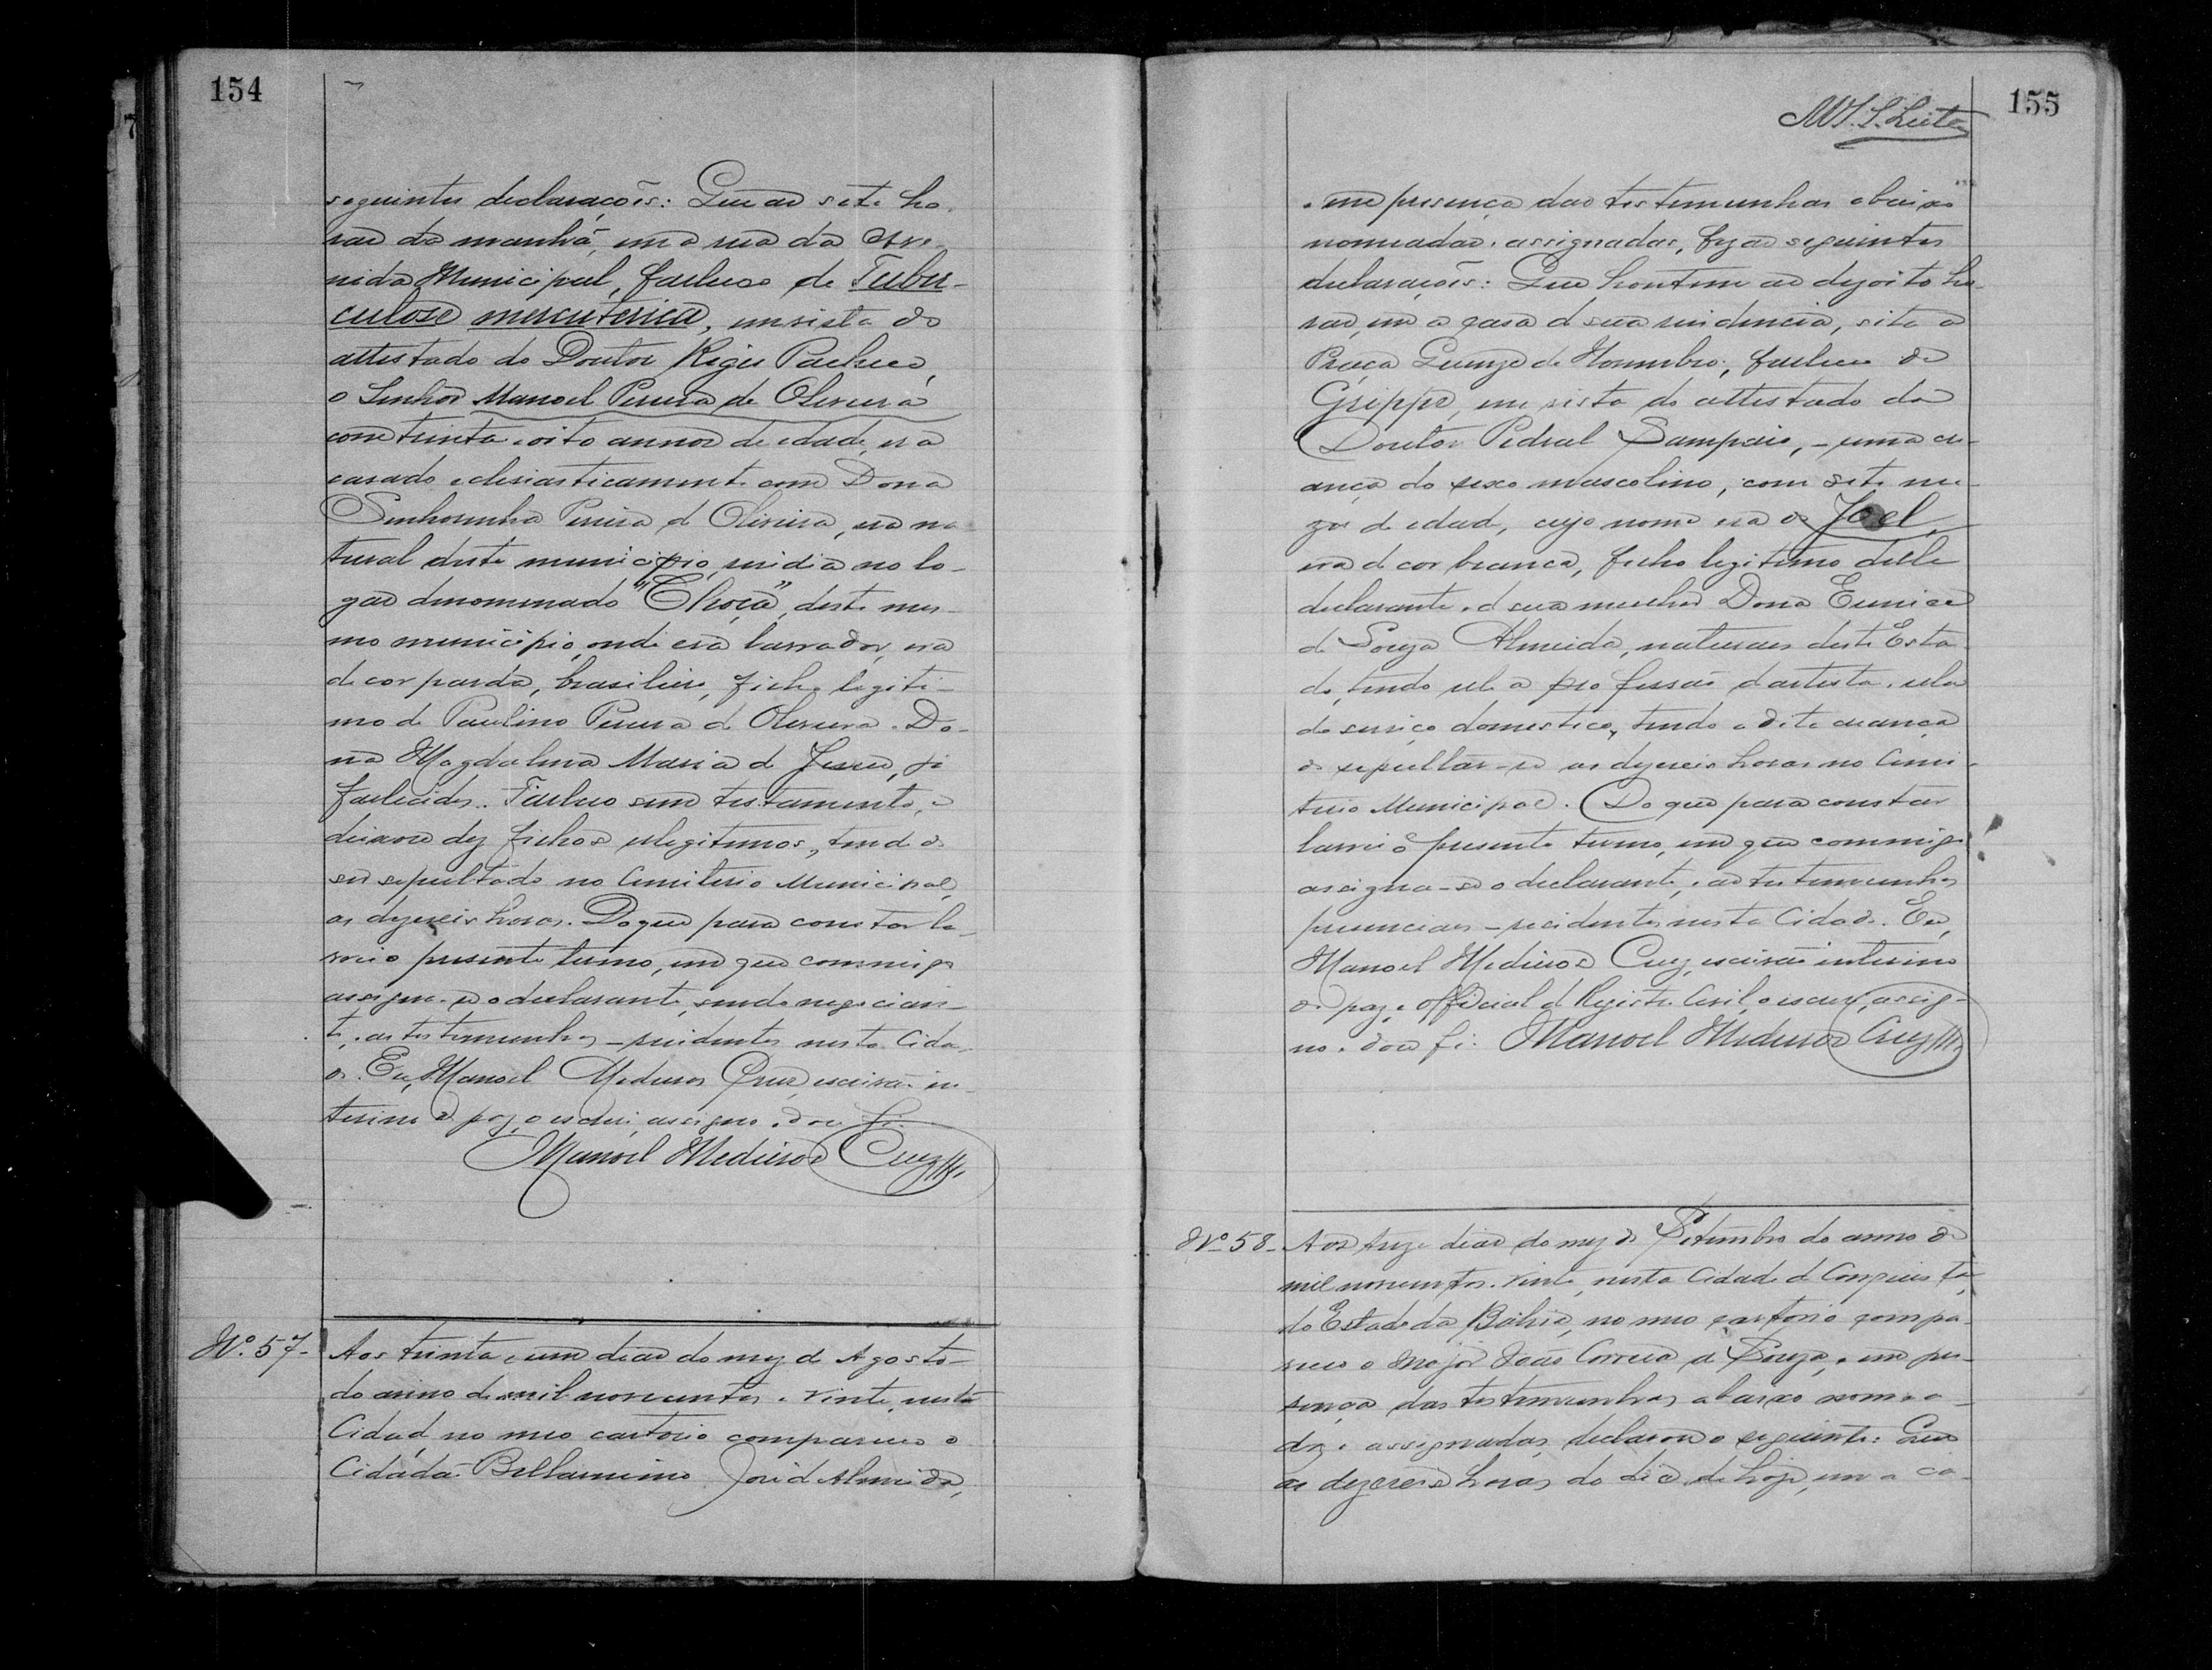 154
seguintes declarações: Que as sete ho-
ras da manhã, em a rua da Ave-
nida Municipal, falleceo de Tuber-
culose mesenterica, em vista do
attestado do Doutor Regis Pacheco,
o Senhor Manoel Pereira de Oliveira
com trinta e oito annos de edade, era
casado eclesiasticamente com Dona
Senhorinha Pereira de Oliveira, era na-
tural deste municipio, residia no lo-
gar denominado "Choça", deste mes-
mo municipio, onde era lavrador, era
de cor parda, brasileiro, filho legiti-
mo de Paulino Pereira de Oliveira e Do-
na Magdalena Maria de Jesus, já
fallecidos. Falleceo sem testamento, e
deixou dez filhos illegitimos, tendo de
ser sepultado no Cemiterio Municipal,
as dezeseis horas. Do que para constar la-
vrei o presente termo, em que commigo
assigna-se o declarante, sendo negocian-
te, e as testemunhas residentes nesta Cida-
de. Eu, Manoel Medeiros Cruz, escrivão in-
terino de paz, o escrevi, assigno e dou fé.
Manoel Medeiros Cruz
Nº. 57- Aos trinta e um dias do mez de Agosto
do anno de mil novecentos e vinte, nesta
Cidade, no meo cartorio compareceo o
Cidadão Bellarmino José de Almeida,
155
e em presença das testemunhas abaixo
nomeadas e assignadas, fez as seguintes
declarações: Que hontem as dezoito ho-
ras, em a casa de sua residencia, sita a
Praça Quinze de Novembro, falleceo de
Grippe, em vista do attestado do
Doutor Pedral Sampaio, - uma cri-
ança do sexo mascolino, com sete me-
zes de edade, cujo nome era de Joel,
era de cor branca, filho legitimo delle
declarante e de sua mulher Dona Eunice
de Souza Almeida, naturaes deste Esta-
do, tendo elle a profissão d'artista e ella
de serviço domestico, tendo a dita creança
de sepultar-se as dezeseis horas no Cemi-
terio Municipal. Do que para constar
lavrei o presente termo, em que commigo
assigna-se o declarante, e as testemunhas
presenciaes - residentes nesta Cidade. Eu,
Manoel Medeiros Cruz, escrivão interino
de paz e official do Registro Civil, o escrevi, assig-
no e dou fé. Manoel Medeiros Cruz
Nº 58- Aos treze dias do mez de Setembro do anno de
mil novecentos e vinte, nesta Cidade de Conquista,
do Estado da Bahia, no meo cartorio compa-
receo o Major João Correia de Souza, e em pre-
sença das testemunhas abaixo nomea-
das e assignadas, declarou o seguinte: Que
as dezeseis horas do dia de hoje, em a ca-